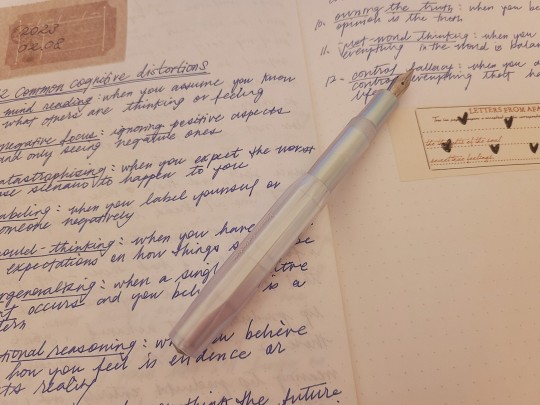 2023
02.08
Common cognitive distortions
mind reading: when you assume you know
what others are thinking or feeling
negative focus: ignoring positive aspects
and only seeing negative ones
catastrophising: when you expect the worst
case scenario to happen to you
labeling: when you label yourself or
someone negatively
should-thinking: when you have
expectations on how things
overgeneralizing: when a single
occurs and you is a
emotional reasoning: you believe
how you feel is evidence or
reality
think the future
10. owning the truth: when you
opinion is the truth
11. thinking: when you
everything in the world is
12. control fallacy: when you
control everything that
life
LETTERS FROM A
of the soul